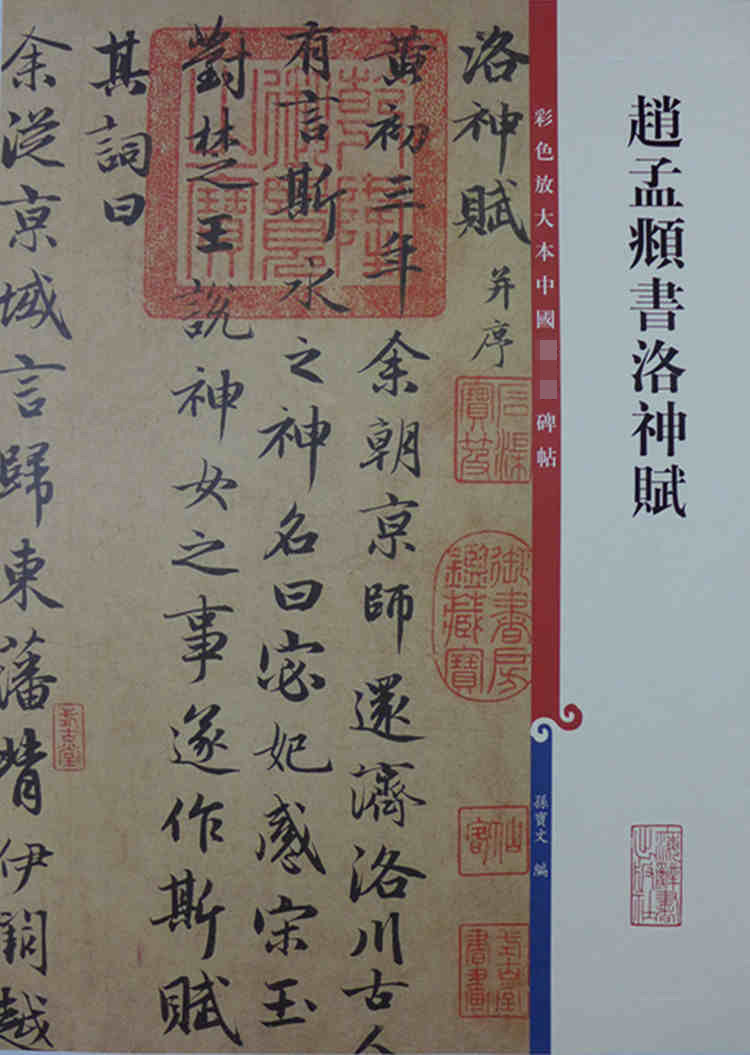 趙孟頫書洛神賦
彩色放大本中國
碑帖
孫寶文 編
洛神賦 并序
黄初三年余朝京師還濟洛川古人
有言斯水之神名曰宓妃感宋玉
對楚王說神女之事遂作斯賦
其詞曰
余從京域言歸東藩背伊闕越
御書房鑑藏寶